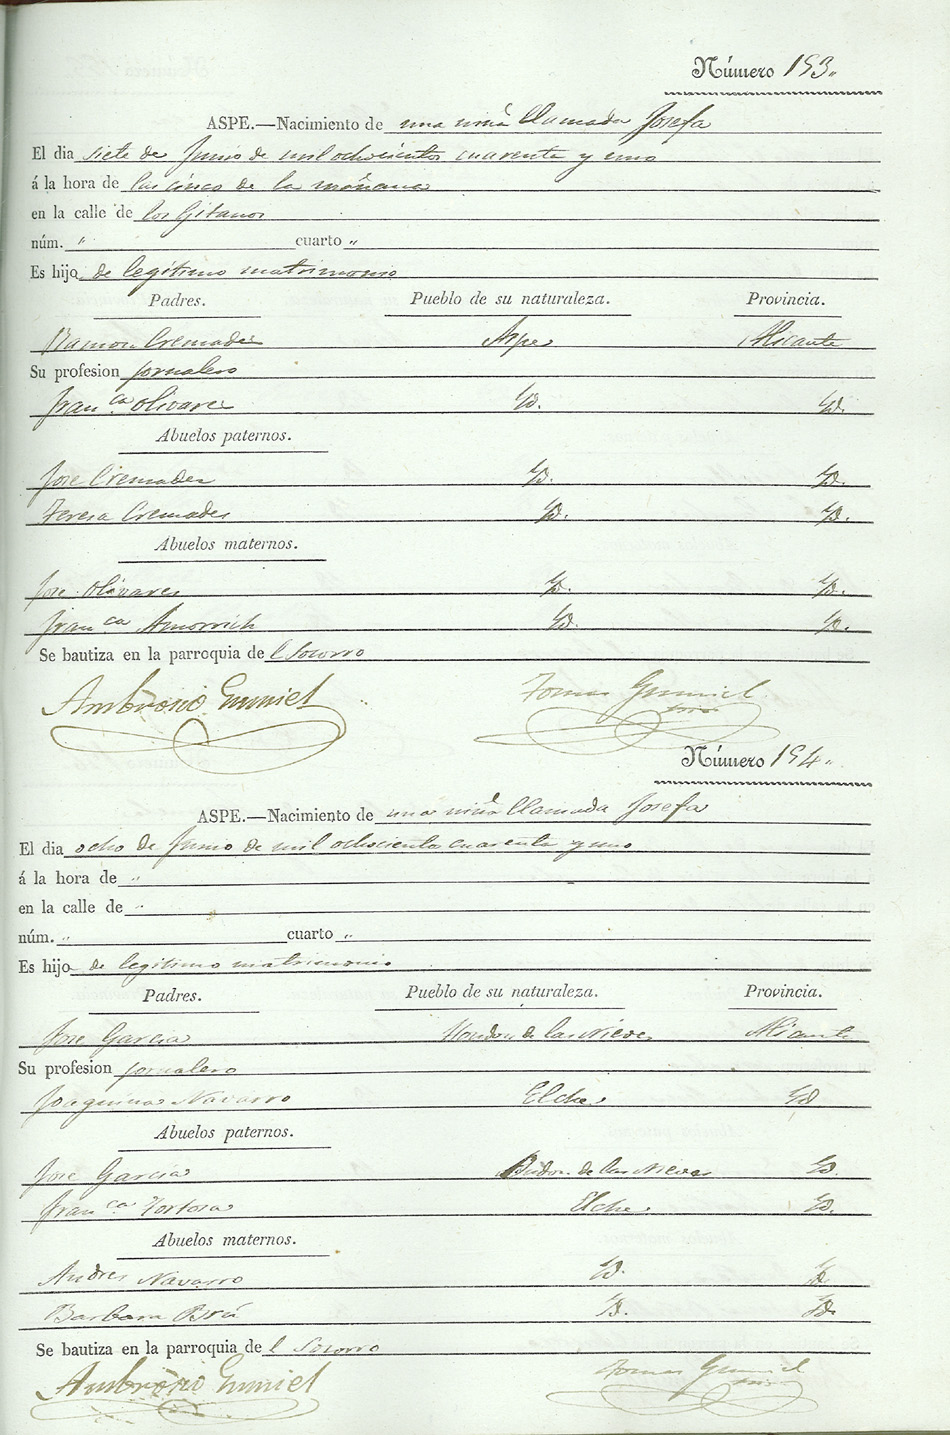 Número 193.
ASPE.—Nacimiento de una niña llamada Josefa
El dia siete de Junio de mil ochocientos cuarenta y uno
á la hora de las cinco de la mañana
en la calle de los Gitanos
núm. " cuarto "
Es hijo de legitimo matrimonio
Padres. Pueblo de su naturaleza. Provincia.
Ramon Cremades Aspe Alicante
Su profesion jornalero
Fran.ca Olivares Yd. Yd.
Abuelos paternos.
Jose Cremades Yd. Yd.
Teresa Cremades Yd. Yd.
Abuelos maternos.
Jose Olivares Yd. Yd.
Fran.ca Yd. Yd.
Se bautiza en la parroquia de l Socorro
Ambrosio Gumiel Tomas Gumiel
Número 194.
ASPE.—Nacimiento de una niña llamada Josefa
El dia ocho de Junio de mil ochocientos cuarenta y uno
á la hora de "
en la calle de "
núm. " cuarto "
Es hijo de legitimo matrimonio
Padres. Pueblo de su naturaleza. Provincia.
Jose Garcia de las Nieves Alicante
Su profesion jornalero
Joaquina Navarro Elche Yd
Abuelos paternos.
Jose Garcia de las Nieves Yd.
Fran.ca Tortosa Elche Yd.
Abuelos maternos.
Andres Navarro Yd. Yd
Barbara Brú Yd. Yd
Se bautiza en la parroquia de l Socorro
Ambrosio Gumiel Tomas Gumiel